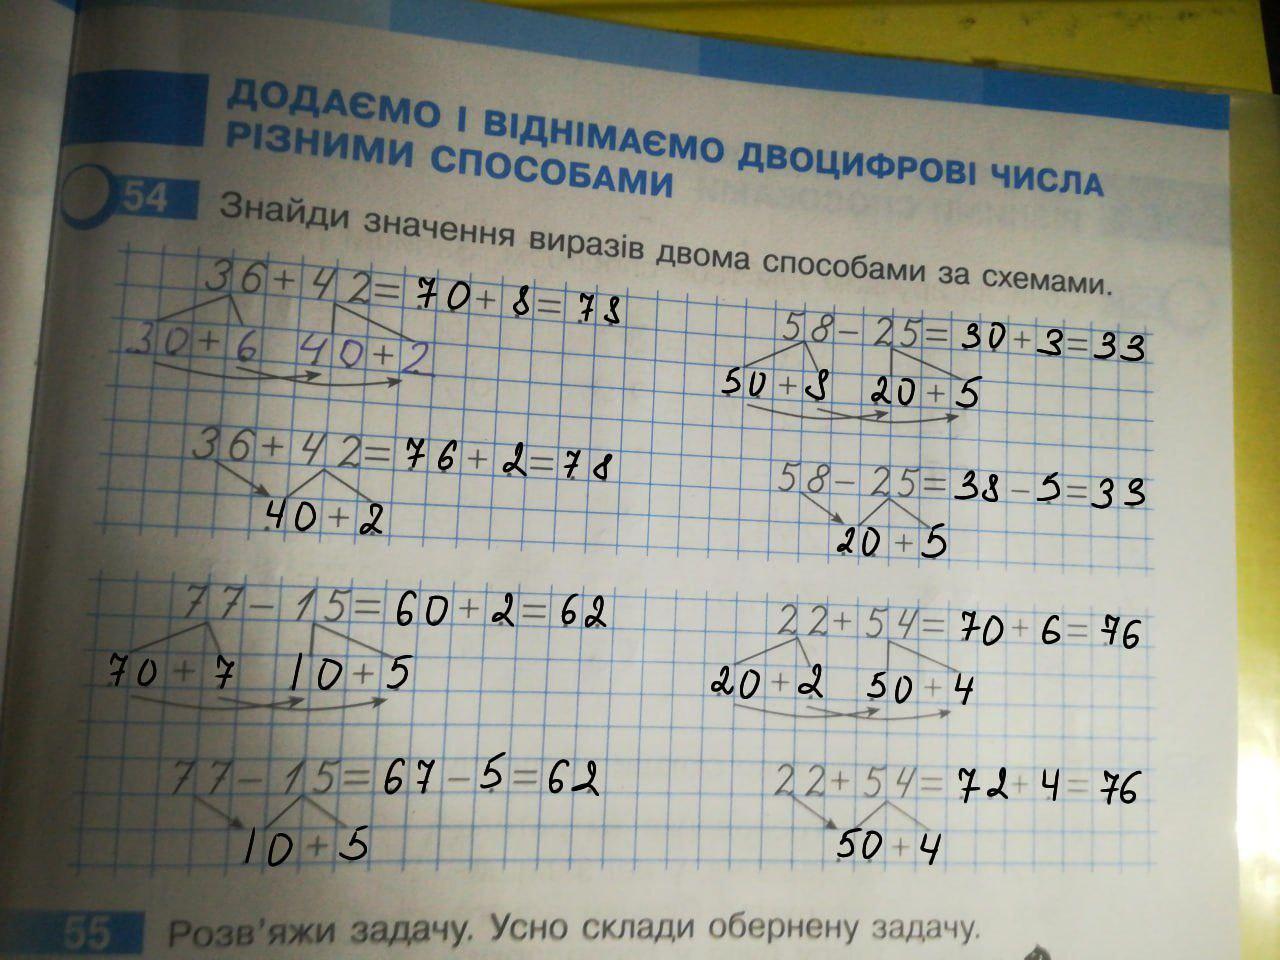 ДОДАЄМО І ВІДНІМАЄМО ДВОЦИФРОВІ ЧИСЛА
РІЗНИМИ СПОСОБАМИ
54 Знайди значення виразів двома способами за схемами.
36+42=70+8=78
30+6 40+2
58-25=30+3=33
50+8 20+5
36+42=76+2=78
40+2
58-25=38-5=33
20+5
77-15=60+2=62
70+7 10+5
22+54=70+6=76
20+2 50+4
77-15=67-5=62
10+5
22+54=72+4=76
50+4
55 Розв'яжи задачу. Усно склади обернену задачу.